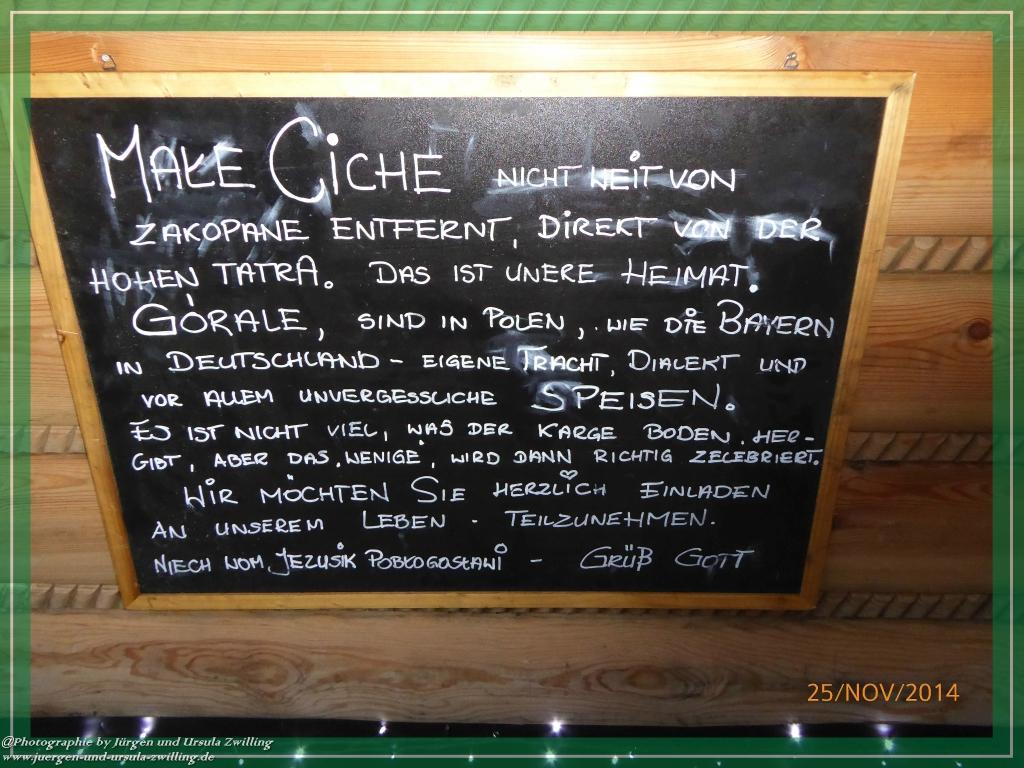 MAŁE CICHE NICHT WEIT VON
ZAKOPANE ENTFERNT, DIREKT VON DER
HOHEN TATRA. DAS IST UNERE HEIMAT.
GÓRALE, SIND IN POLEN, WIE DIE BAYERN
IN DEUTSCHLAND - EIGENE TRACHT, DIALEKT UND
VOR ALLEM UNVERGESSLICHE SPEISEN.
ES IST NICHT VIEL, WAS DER KARGE BODEN HER-
GIBT, ABER DAS WENIGE, WIRD DANN RICHTIG ZELEBRIERT.
WIR MÖCHTEN SIE HERZLICH EINLADEN
AN UNSEREM LEBEN - TEILZUNEHMEN.
NIECH WOM JEZUSIK POBŁOGOSŁAWI - GRÜß GOTT
25/NOV/2014
@Photographie by Jürgen und Ursula Zwilling
www.juergen-und-ursula-zwilling.de